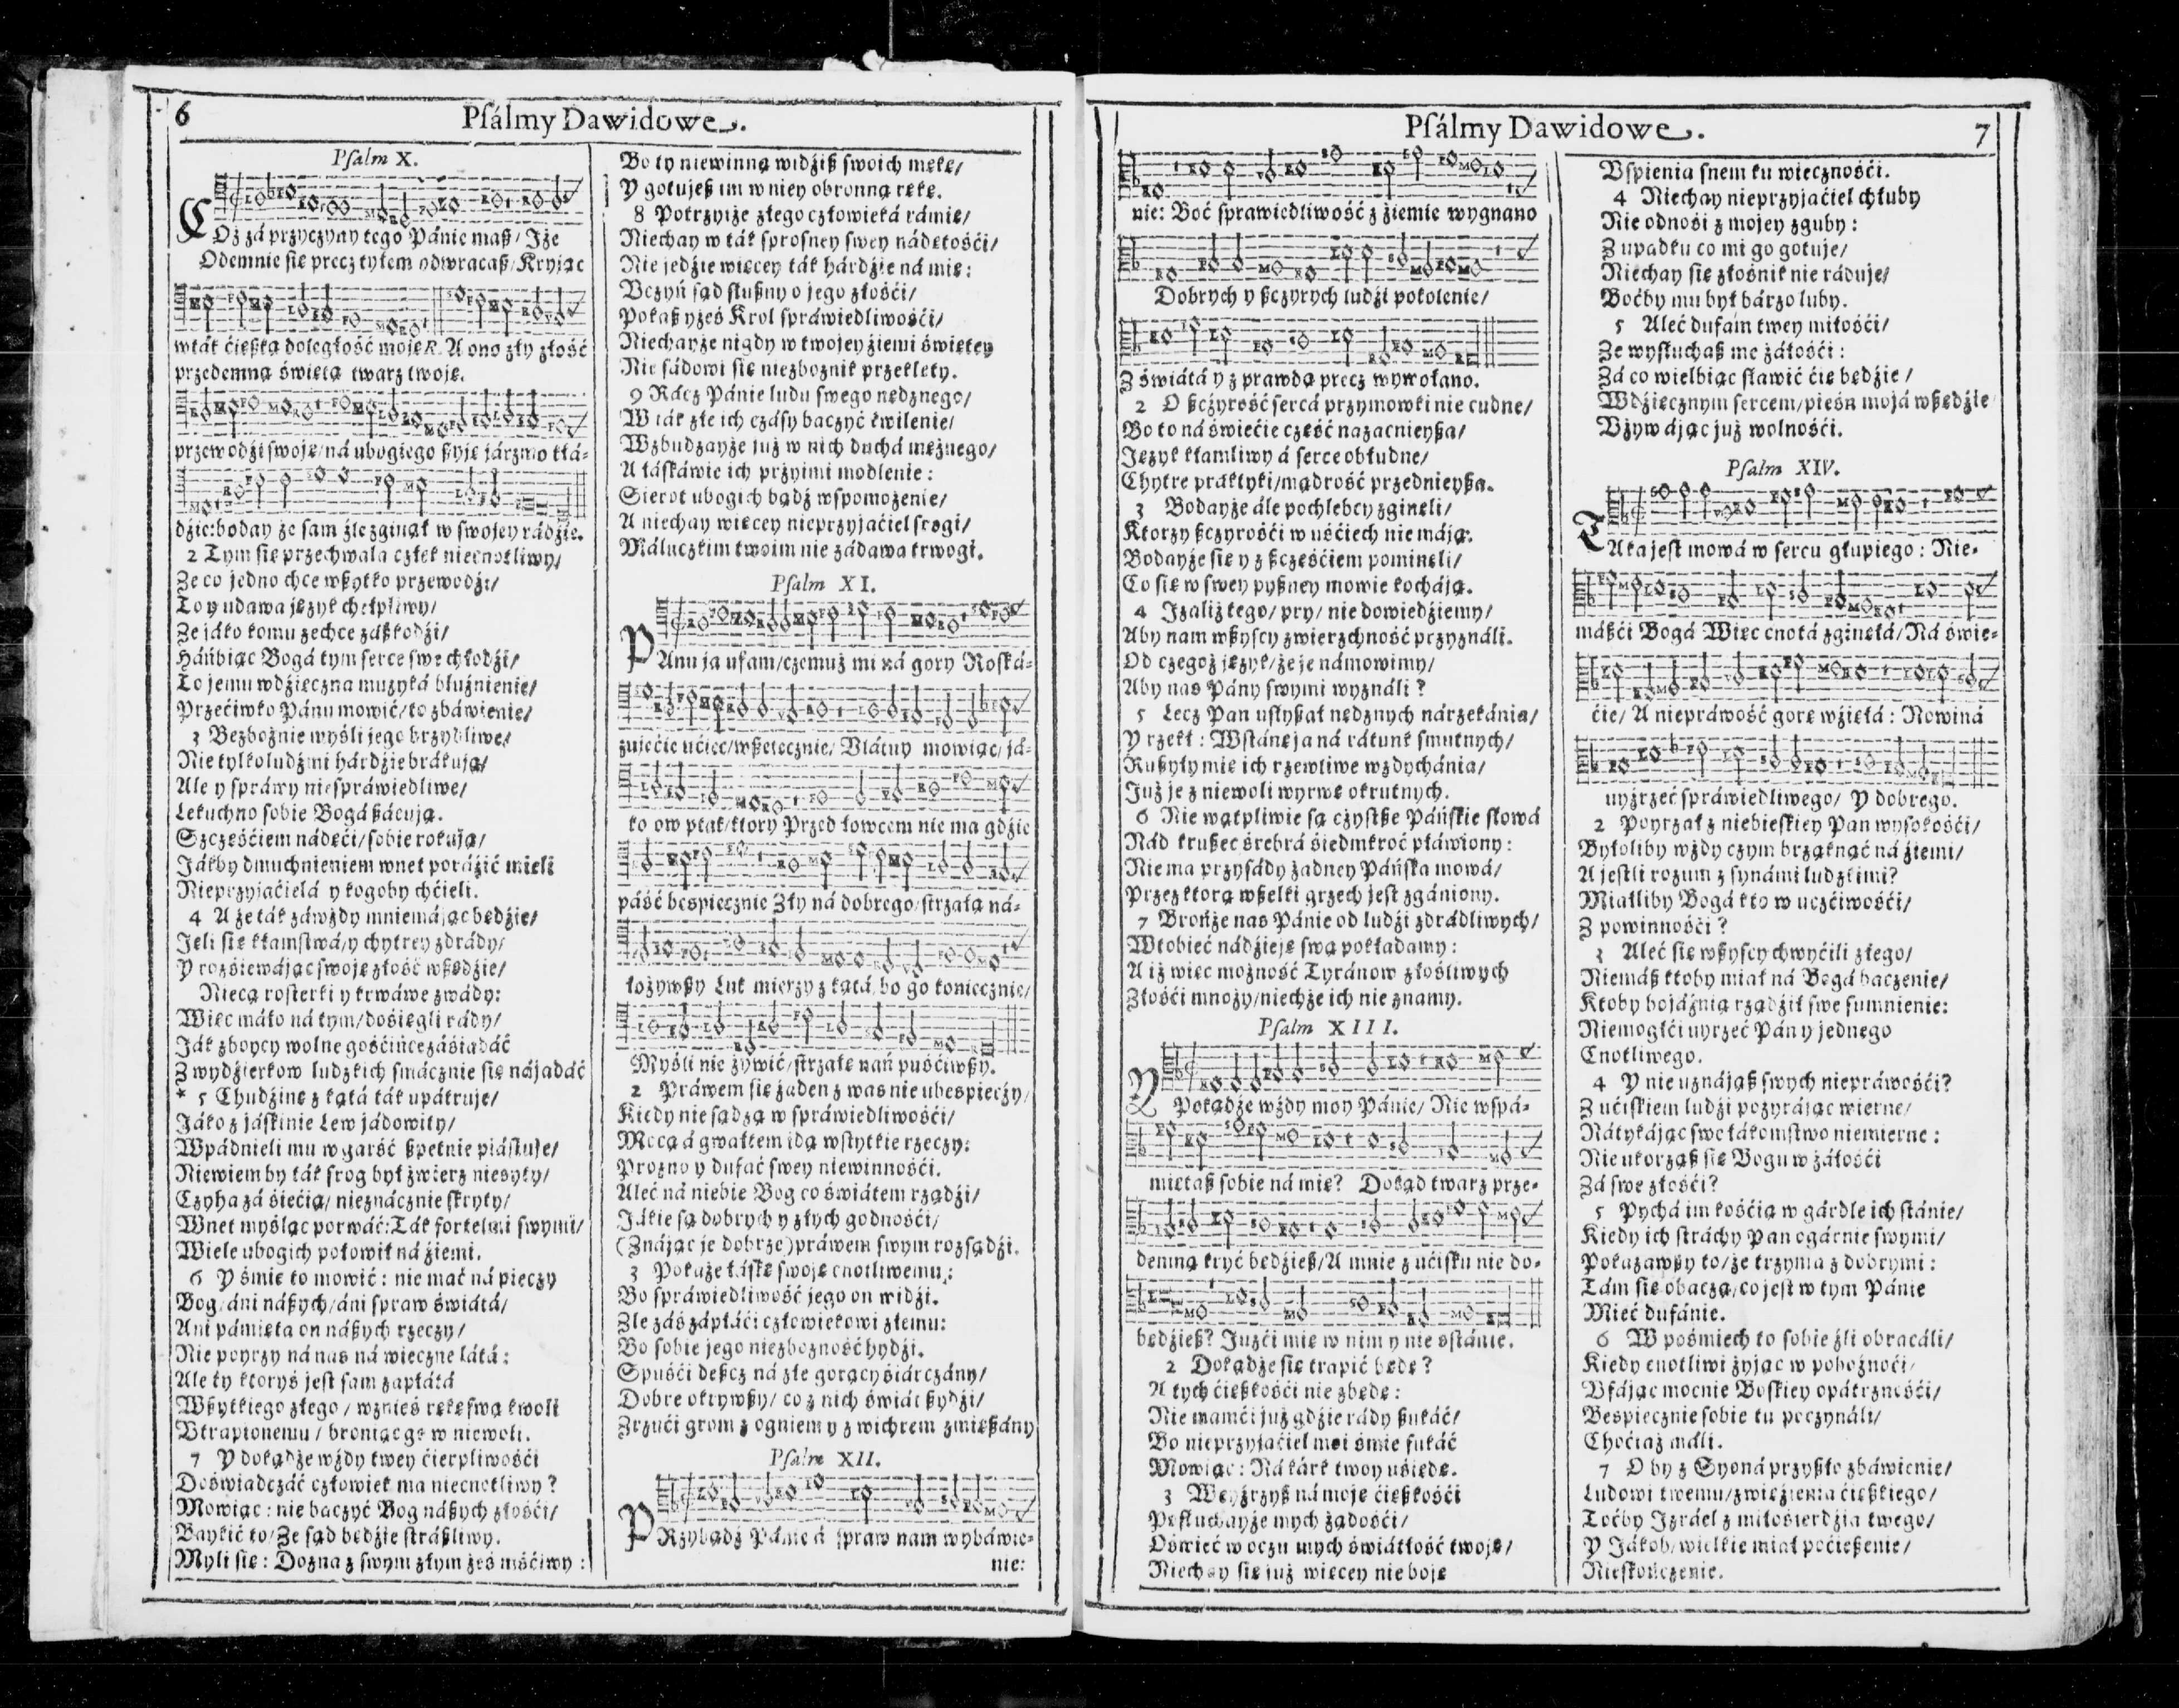 6
Psálmy Dawidowe.
Psalm X.
COż zá przyczyny tego Pánie masz/ Iże
Odemnie się precz tyłem odwracasz/ Kryjąc
wták ćięszką doległość moję. A ono zły złość
przedemną świętą twarz twoję.
przewodzi swoję/ ná ubogiego szyję járzmo kłá-
dzie: boday że sam źle zginął w swojey rádzie.
2 Tym się przechwala człek niecnotliwy/
Że co jedno chce wszytko przewodzi/
To y udawa język chełpliwy/
Że jáko komu zechce zászkodzi/
Háńbiąc Bogá tym serce swe chłodzi/
To jemu wdzięczna muzyká bluźnienie/
Przećiwko Pánu mowić/ to zbáwienie/
3 Bezbożnie wyśli jego brzydliwe/
Nie tylko ludźmi hárdzie brákują/
Ale y spráwy niespráwiedliwe/
Lekuchno sobie Bogá szácują.
Szczęśćiem nádęći/ sobie rokują/
Jákby dmuchnieniem wnet porázić mieli
Nieprzyjaćielá y kogoby chćieli.
4 A że ták záwżdy mniemájąc będzie/
Jeli się kłamstwá/ y chytrey zdrády/
Y rozśiewájąc swoję złość wszędzie/
Niecą rosterki y krwáwe zwády:
Więc máło ná tym/ dośięgli rády/
Ják zboycy wolne gośćińce záśiadáć
Z wydźierkow ludzkich smácznie się nájadáć
* 5 Chudźinę z kątá ták upátruje/
Jáko z jáskinie Lew jádowity/
Wpádnieli mu w garść szpetnie piástuje/
Niewiem by ták srog był zwierz niesyty/
Czyha zá śiećią/ nieznácznie skryty/
Wnet myśląc porwáć: Ták fortelmi swymi/
Wiele ubogich połowił ná źiemi.
6 Y śmie to mowić: nie mać ná pieczy
Bog/ áni nászych/ áni spraw świátá/
Ani pámięta on nászych rzeczy/
Nie poyrzy ná nas ná wieczne látá:
Ale ty ktoryś jest sam zapłátá
Wszytkiego złego/ wznieś rękę swą kwoli
Utrapionemu/ broniąc go w niewoli.
7 Y dokądże wżdy twey ćierpliwośći
Doświadczáć człowiek ma niecnotliwy?
Mowiąc: nie baczyć Bog nászych złośći/
Baykić to/ Że sąd będzie strászliwy.
Myli się: Dozna z swym złym żeś mśćiwy:
Bo ty niewinną widzisz swoich mękę/
Y gotujesz im w niey obronną rękę.
8 Potrzyiże złego człowieká rámię/
Niechay w ták sprosney swey nádętośći/
Nie jedzie więcey ták hárdzie ná mię:
Uczyń sąd słuszny o jego złośći/
Pokasz yżeś Krol spráwiedliwośći/
Niechayże nigdy w twojey źiemi świętey
Nie sádowi się niezbożnik przeklęty.
9 Rácz Pánie ludu swego nędznego/
W ták złe ich czásy baczyć kwilenie/
Wzbudzayże już w nich duchá mężnego/
A łáskáwie ich przyimi modlenie:
Sierot ubogich bądź wspomożenie/
A niechay więcey nieprzyjaćiel srogi/
Máluczkim twoim nie zádawa trwogi.
Psalm XI.
PAnu ja ufam/ czemuż mi ná gory Roská-
zujećie ućiec/ wszetecznie/ Ulátuy mowiąc/ já-
ko ow ptak/ ktory Przed łowcem nie ma gdzie
páść bespiecznie Zły ná dobrego/ strzałą ná-
łożywszy Łuk mierzy z kątá, bo go koniecznie/
Myśli nie żywić/ strzałę nań puśćiwszy.
2 Práwem się żaden z was nie ubespieczy/
Kiedy nie sądzą w spráwiedliwośći/
Mocą á gwałtem idą wszytkie rzeczy:
Prozno y dufać swey niewinnośći.
Aleć ná niebie Bog co świátem rządzi/
Jákie są dobrych y złych godnośći/
(Znájąc je dobrze) práwem swym rozsądzi.
3 Pokaże łáskę swoję cnotliwemu:
Bo spráwiedliwość jego on widzi.
Złe záś zápłáći człowiekowi złemu:
Bo sobie jego niezbożność hydzi.
Spuśći deszcz ná złe gorący śiárczány/
Dobre okrywszy/ co z nich świát szydzi/
Zrzući grom z ogniem y z wichrem zmieszány
Psalm XII.
PRzybądź Pánie á spraw nam wybáwie-
nie:
Psálmy Dawidowe.
7
nie: Boć sprawiedliwość z źiemie wygnano
Dobrych y szczyrych ludzi pokolenie/
Z świátá y z prawdą precz wywołano.
2 O szczyrość sercá przymowki nie cudne/
Bo to ná świećie cześć nazacnieysza/
Język kłamliwy á serce obłudne/
Chytre praktyki/ mądrość przednieysza.
3 Bodayże ále pochlebcy zginęli/
Ktorzy szczyrośći w uśćiech nie máją.
Bodayże się y z szczęśćiem pominęli/
Co się w swey pyszney mowie kochają.
4 Izaliż tego/ pry/ nie dowiedźiemy/
Aby nam wszyscy zwierzchność przyználi.
Od czegoż język/ że je námowimy/
Aby nas Pány swymi wyználi?
5 Lecz Pan usłyszał nędznych nárzekánia/
Y rzekł: Wstánę ja ná rátunk smutnych/
Ruszyły mię ich rzewliwe wzdychánia/
Już je z niewoli wyrwę okrutnych.
6 Nie wątpliwie są czystsze Páńskie słowá
Nád kruszec śrebrá śiedmkroć płáwiony:
Nie ma przysády żadney Páńska mowá/
Przez ktorą wszelki grzech jest zgániony.
7 Brońże nas Pánie od ludzi zdrádliwych/
W tobieć nádzieję swą pokładamy:
A iż więc możność Tyránow złośliwych
Złośći mnoży/ niechże ich nie znamy.
Psalm XIII.
Y Pokądże wżdy moy Pánie/ Nie wspá-
miętasz sobie ná mię? Dokąd twarz prze-
demną kryć będziesz/ A mnie z ućisku nie do-
będziesz? Juzći mię w nim y nie sstánie.
2 Dokądże się trapić będę?
A tych ćięszkośći nie zbędę:
Nie mamći już gdzie rády szukáć/
Bo nieprzyjaćiel moi śmie fukáć
Mowiąc: Ná kárk twoy uśiędę.
3 Weyźrzysz ná moje ćięszkośći
Posłuchayże mych żądośći/
Oświeć w oczu mych świátłość twoję/
Niechay się już więcey nie boję
Uspienia snem ku wiecznośći.
4 Niechay nieprzyjaćiel chłuby
Nie odnośi z mojey zguby:
Z upadku co mi go gotuje/
Niechay się złośnik nie ráduje/
Boćby mu był bárzo luby.
5 Aleć dufam twey miłośći/
Że wysłuchasz me żáłośći:
Zá co wielbiąc sławić ćię będzie/
Wdzięcznym sercem/ pieśń mojá wszędzie
Używájąc już wolnośći.
Psalm XIV.
TAka jest mowá w sercu głupiego: Nie-
mászći Bogá Więc cnotá zginęłá/ Ná świe-
ćie/ A niepráwość gorę wzięłá: Nowiná
uyźrzeć spráwiedliwego/ Y dobrego.
2 Poyrzał z niebieskiey Pan wysokośći/
Byłoliby wżdy czym brząknąć ná źiemi/
A jestli rozum z synámi ludzkimi?
Miałliby Bogá kto w uczćiwośći/
Z powinnośći?
3 Aleć się wszyscy chwyćili złego/
Niemász ktoby miał ná Bogá baczenie/
Ktoby bojáźnią rządził swe sumnienie:
Niemogłći uyrzeć Pán y jednego
Cnotliwego.
4 Y nie uznájąsz swych niepráwośći?
Z ućiskiem ludzi pożyrájąc wierne/
Nátykájąc swe łákomstwo niemierne:
Nie ukorząsz się Bogu w żáłośći
Zá swe złośći?
5 Pychá im kośćią w gárdle ich stánie/
Kiedy ich stráchy Pan ogárnie swymi/
Pokazawszy to/ że trzyma z dobrymi:
Tám się obaczą/ co jest w tym Pánie
Mieć dufánie.
6 W pośmiech to sobie źli obracáli/
Kiedy cnotliwi żyjąc w pobożnoći/
Ufájąc mocnie Boskiey opátrznośći/
Bespiecznie sobie tu poczynáli/
Choćiaż máli.
7 O by z Syoná przyszło zbáwienie/
Ludowi twemu/ z więzienia ćięszkiego/
Toćby Izráel z miłośierdzia twego/
Y Jákob/ wielkie miał poćieszenie/
Nieskończenie.